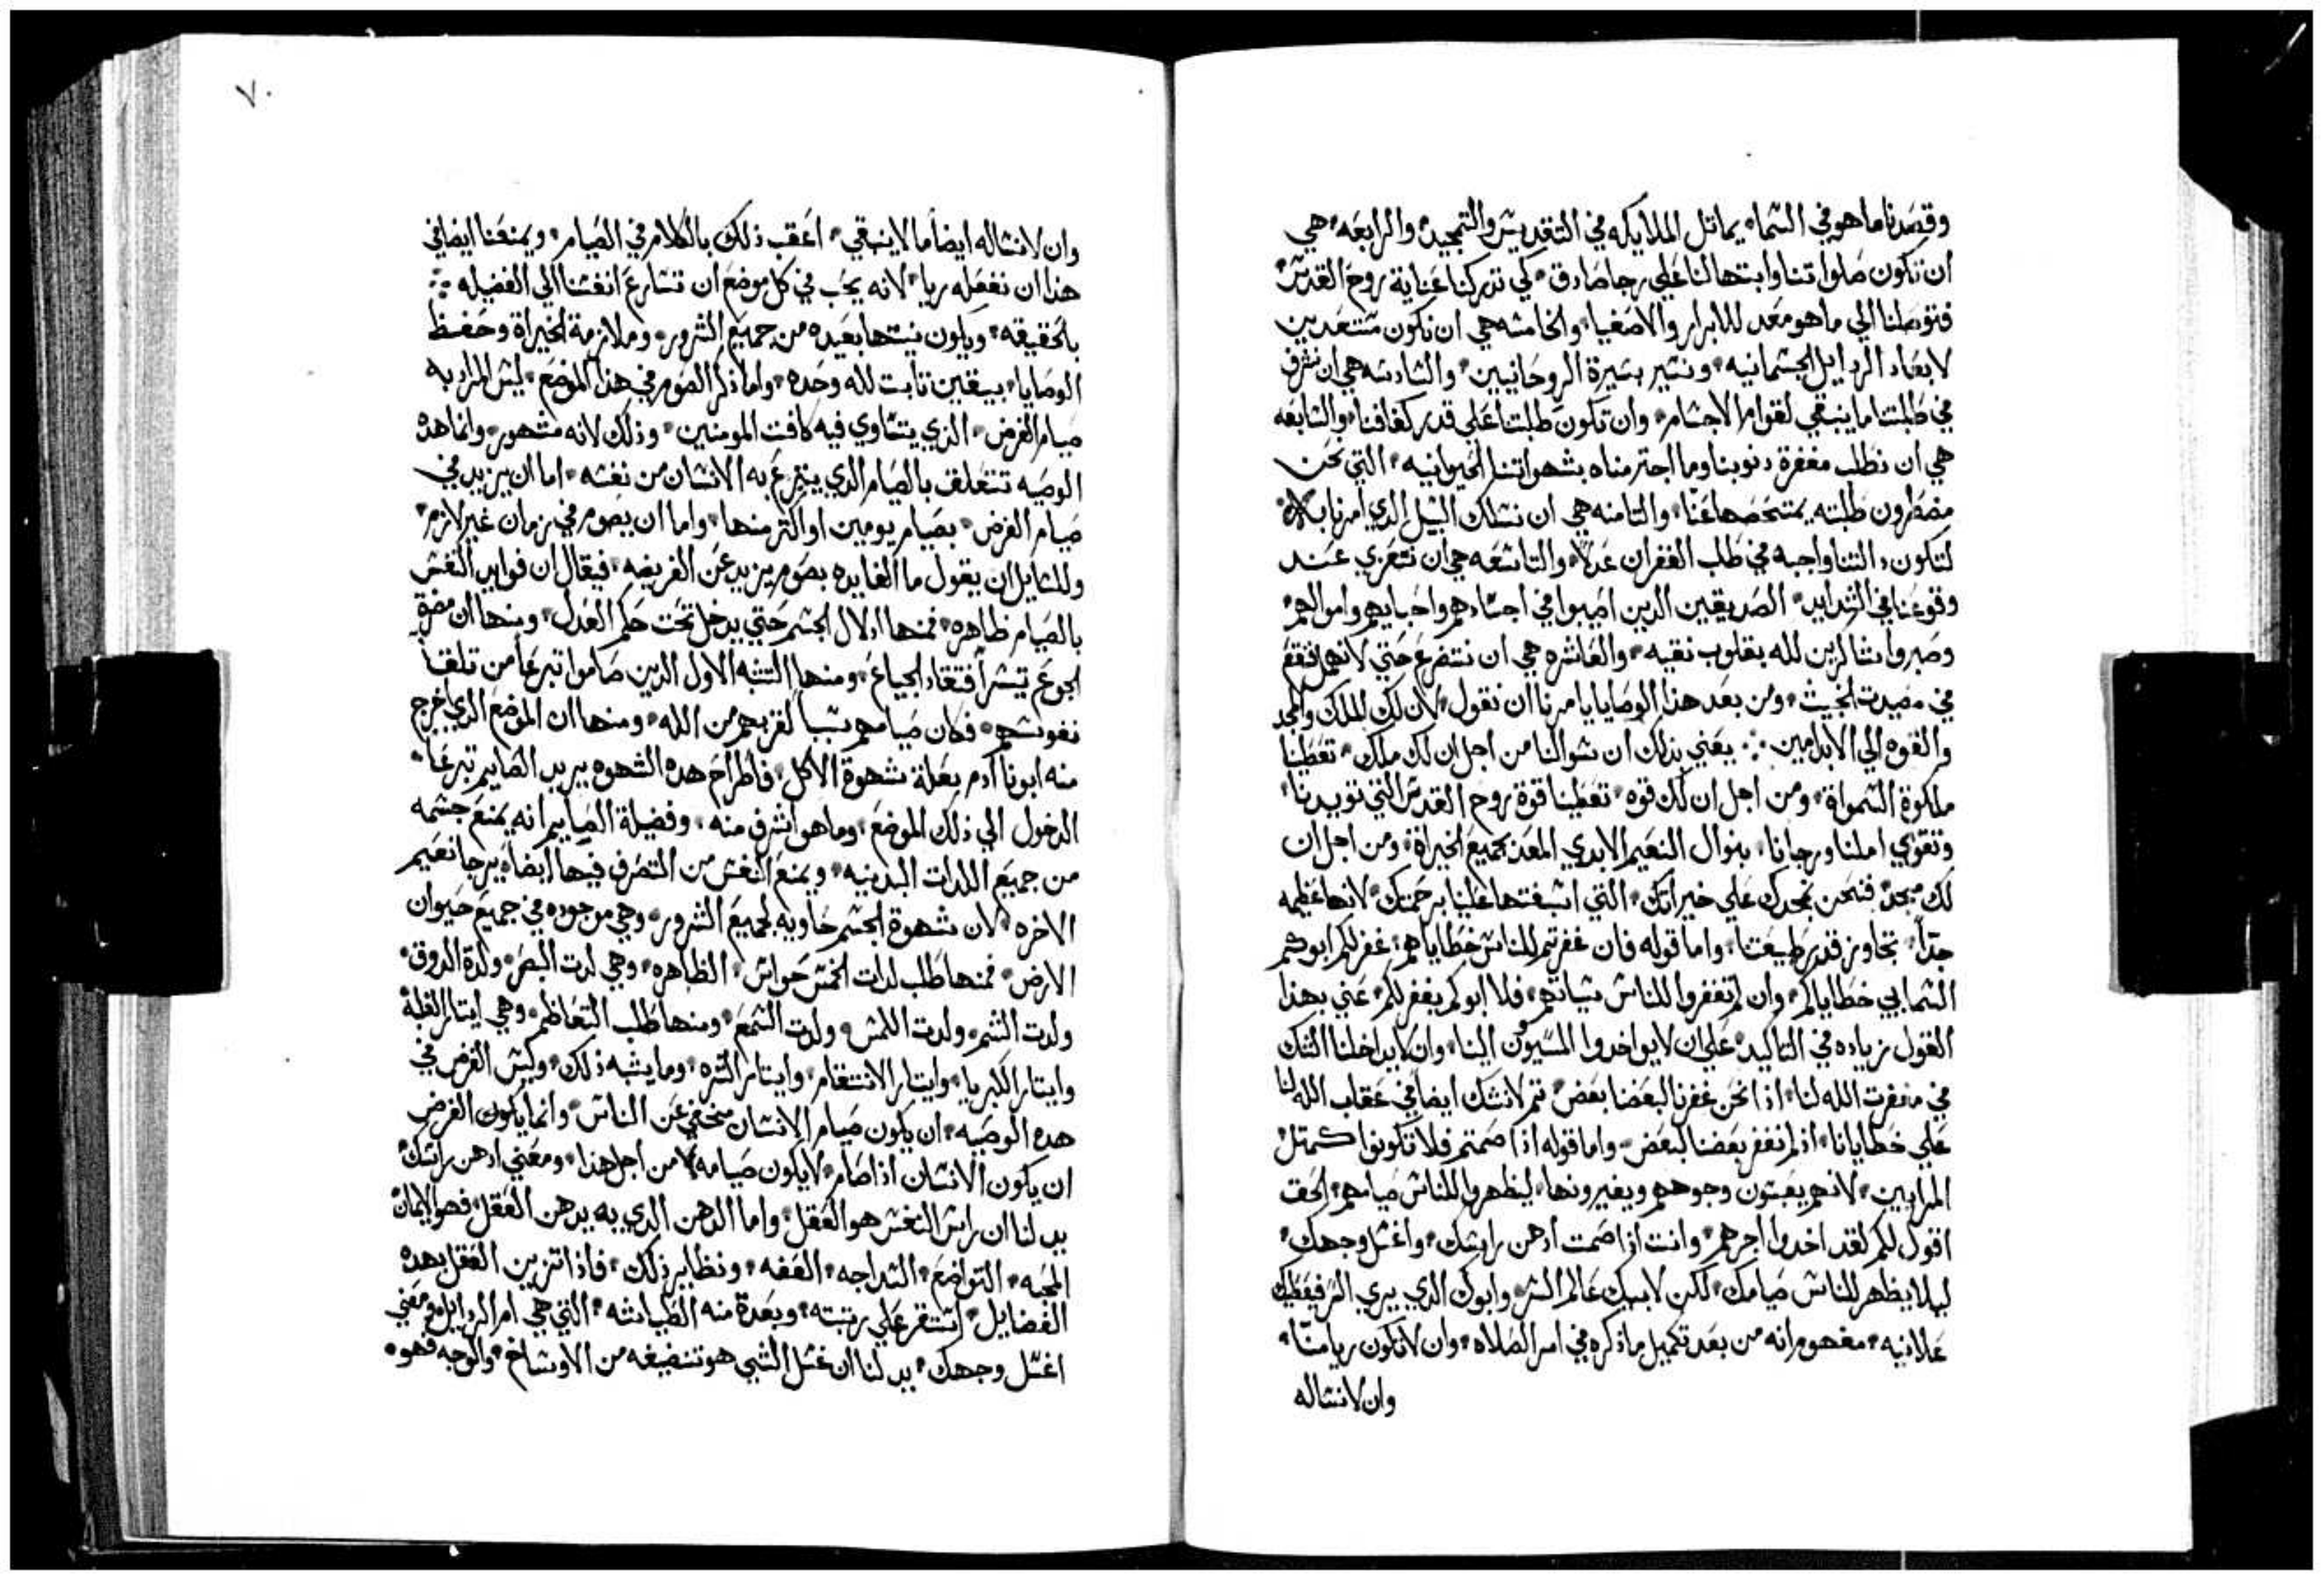 وقصدنا ماهو في السماء يماثل الملايكه في التقديس والتمجيد والرابعه هي
ان تكون صلواتنا وابتهالنا علي رجا صادق كي تدركنا عناية روح القدس
فتوصلنا الي ماهو معد للابرار والاصفيا والخامسه هي ان نكون مستعدين
لابعاد الردايل الجسمانيه ونسير بسيرة الروحانيين والسادسه هي ان نشرف
في طلبتنا ماينبغي لقوام الاجسام وان تكون طلبتنا علي قدر كفافنا والسابعه
هي ان نطلب مغفرة دنوبنا وما اجترمناه بشهواتنا الحيوانيه التي نحن
مضطرون طلبته يمتحصها عنا والتامنه هي ان نسلك السبل الدي امرنا بها
لتكون دالتنا واجبه في طلب الغفران عدلا والتاسعه هي ان نتعزي عند
وقوعنا في الشدايد الصديقين الدين اصيبوا في اجسادهم واحبايهم واموالهم
وصبروا شاكرين لله بقلوب نقيه والعاشره هي ان نتضرع حتي لانهمل فنقع
في مصيدت الخبيث ومن بعد هذا الوصايا يامرنا ان نقول لان لك الملك والمجد
والقوه الي الابد امين يعني بذلك ان سوالنا من اجل ان لك ملك تعطينا
ملكوة السمواة ومن اجل ان لك قوه تعطينا قوة روح القدس التي تويدنا
وتقوي املنا ورجانا بنوال النعيم الابدي المعد بجميع الخيراة ومن اجل ان
لك مجد فنحن نمجدك علي خيراتك التي اسبغتها علينا برحمتك لانها عظيمه
جداً تجاوز قدر طبيعتنا واما قوله فان غفرتم للناس خطاياهم غفر لكم ابوكم
السمايي خطاياكم وان لم تغفروا للناس سياتهم فلا ابوكم يغفر لكم عني بهذا
القول زياده في التاكيد علي ان لايواخدوا المسيون الينا وان لايداخلنا الشك
في مغفرت الله لنا اذا نحن غفرنا لبعضنا بعض تم لانشك ايضا في عقاب الله لنا
علي خطايانا اذ لم نغفر بعضنا لبعض واما قوله اذا صمتم فلا تكونوا كمتل
المرايين لانهم يعبسون وجوههم ويغيرونها ليظهروا للناس صيامهم الحق
اقول لكم لقد اخدوا اجرهم وانت اذا صمت ادهن راسك واغسل وجهك
ليلا يظهر للناس صيامك لكن لابيك عالم السر وابوك الدي يري السر فيعطيك
علانيه مفهوم انه من بعد تكميل ماذكره في امر الصلاه وان لاتكون ريا منا
وان لانساله
٧٠
وان لانساله ايضاً ما لاينبغي اعقب ذلك بالكلام في الصيام ويمنعنا ايضا في
هذا ان نفعله ريا لانه يجب في كل موضع ان تسارع انفسنا الي الفضيله
بالحقيقه ويكون نيتها بعيده من جميع الشرور وملازمة الخيراة وحفظ
الوصايا بيقين تابت لله وحده واما ذكر الصوم في هذا الموضع ليس المراد به
صيام الفرض الذي يتساوي فيه كافت المومنين وذلك لانه مشهور وانما هده
الوصيه تتعلق بالصيام الدي يتبرع به الانسان من نفسه اما ان يزيد في
صيام الفرض بصيام يومين او اكتر منها واما ان يصوم في زمان غير لازم
وللسايل ان يقول ما الفايده بصوم يزيد عن الفريضه فيقال ان فوايد النفس
بالصيام ظاهره فمنها ادلال الجسم حتي يدخل تحت حكم العدل ومنها ان مضرة
الجوع تيسر افتقاد الجياع ومنها التشبه الاول الدين صاموا تبرعاً من تلقا
نفوسهم فكان صيامهم سبباً لقربهم من الله ومنها ان الموضع الدي اخرج
منه ابونا آدم بعلة شهوة الاكل فاطراح هده الشهوه يريد الصايم تبرعاً
الدخول الي ذلك الموضع وماهو اشرف منه وفضيلة الصايم انه يمنع جسمه
من جميع اللدات البدنيه ويمنع النفس من التصرف فيها ايضاً يرجا نعيم
الاخره لان شهوة الجسم حاويه لجميع الشرور وهي موجوده في جميع حيوان
الارض فمنها طلب لدات الخمس حواس الظاهره وهي لدت البصر ولدة الدوق
ولدت الشم ولدت اللمس ولدت السمع ومنها طلب التعاظم وهي ايتار الغلبة
وايتار الكبريا وايتار الانتقام وايتار الشره ومايشبه ذلك وليس الفرض في
هده الوصيه ان يكون صيام الانسان مخفي عن الناس وانما يكون الفرض
ان يكون الانسان اذا صام لايكون صيامه من اجل هذا ومعني ادهن راسك
يدلنا ان راس النفس هو العقل واما الدهن الدي به يدهن العقل فهو الايمان
المحبه التواضع السداجه العفه ونظاير ذلك فاذا تزين العقل بهده
الفضايل استقر علي رتبته وبعدة منه الطياشه التي هي ام الردايل ومعني
اغسل وجهك يدلنا ان غسل الشي هو تنضيفه من الاوساخ والوجه فهو